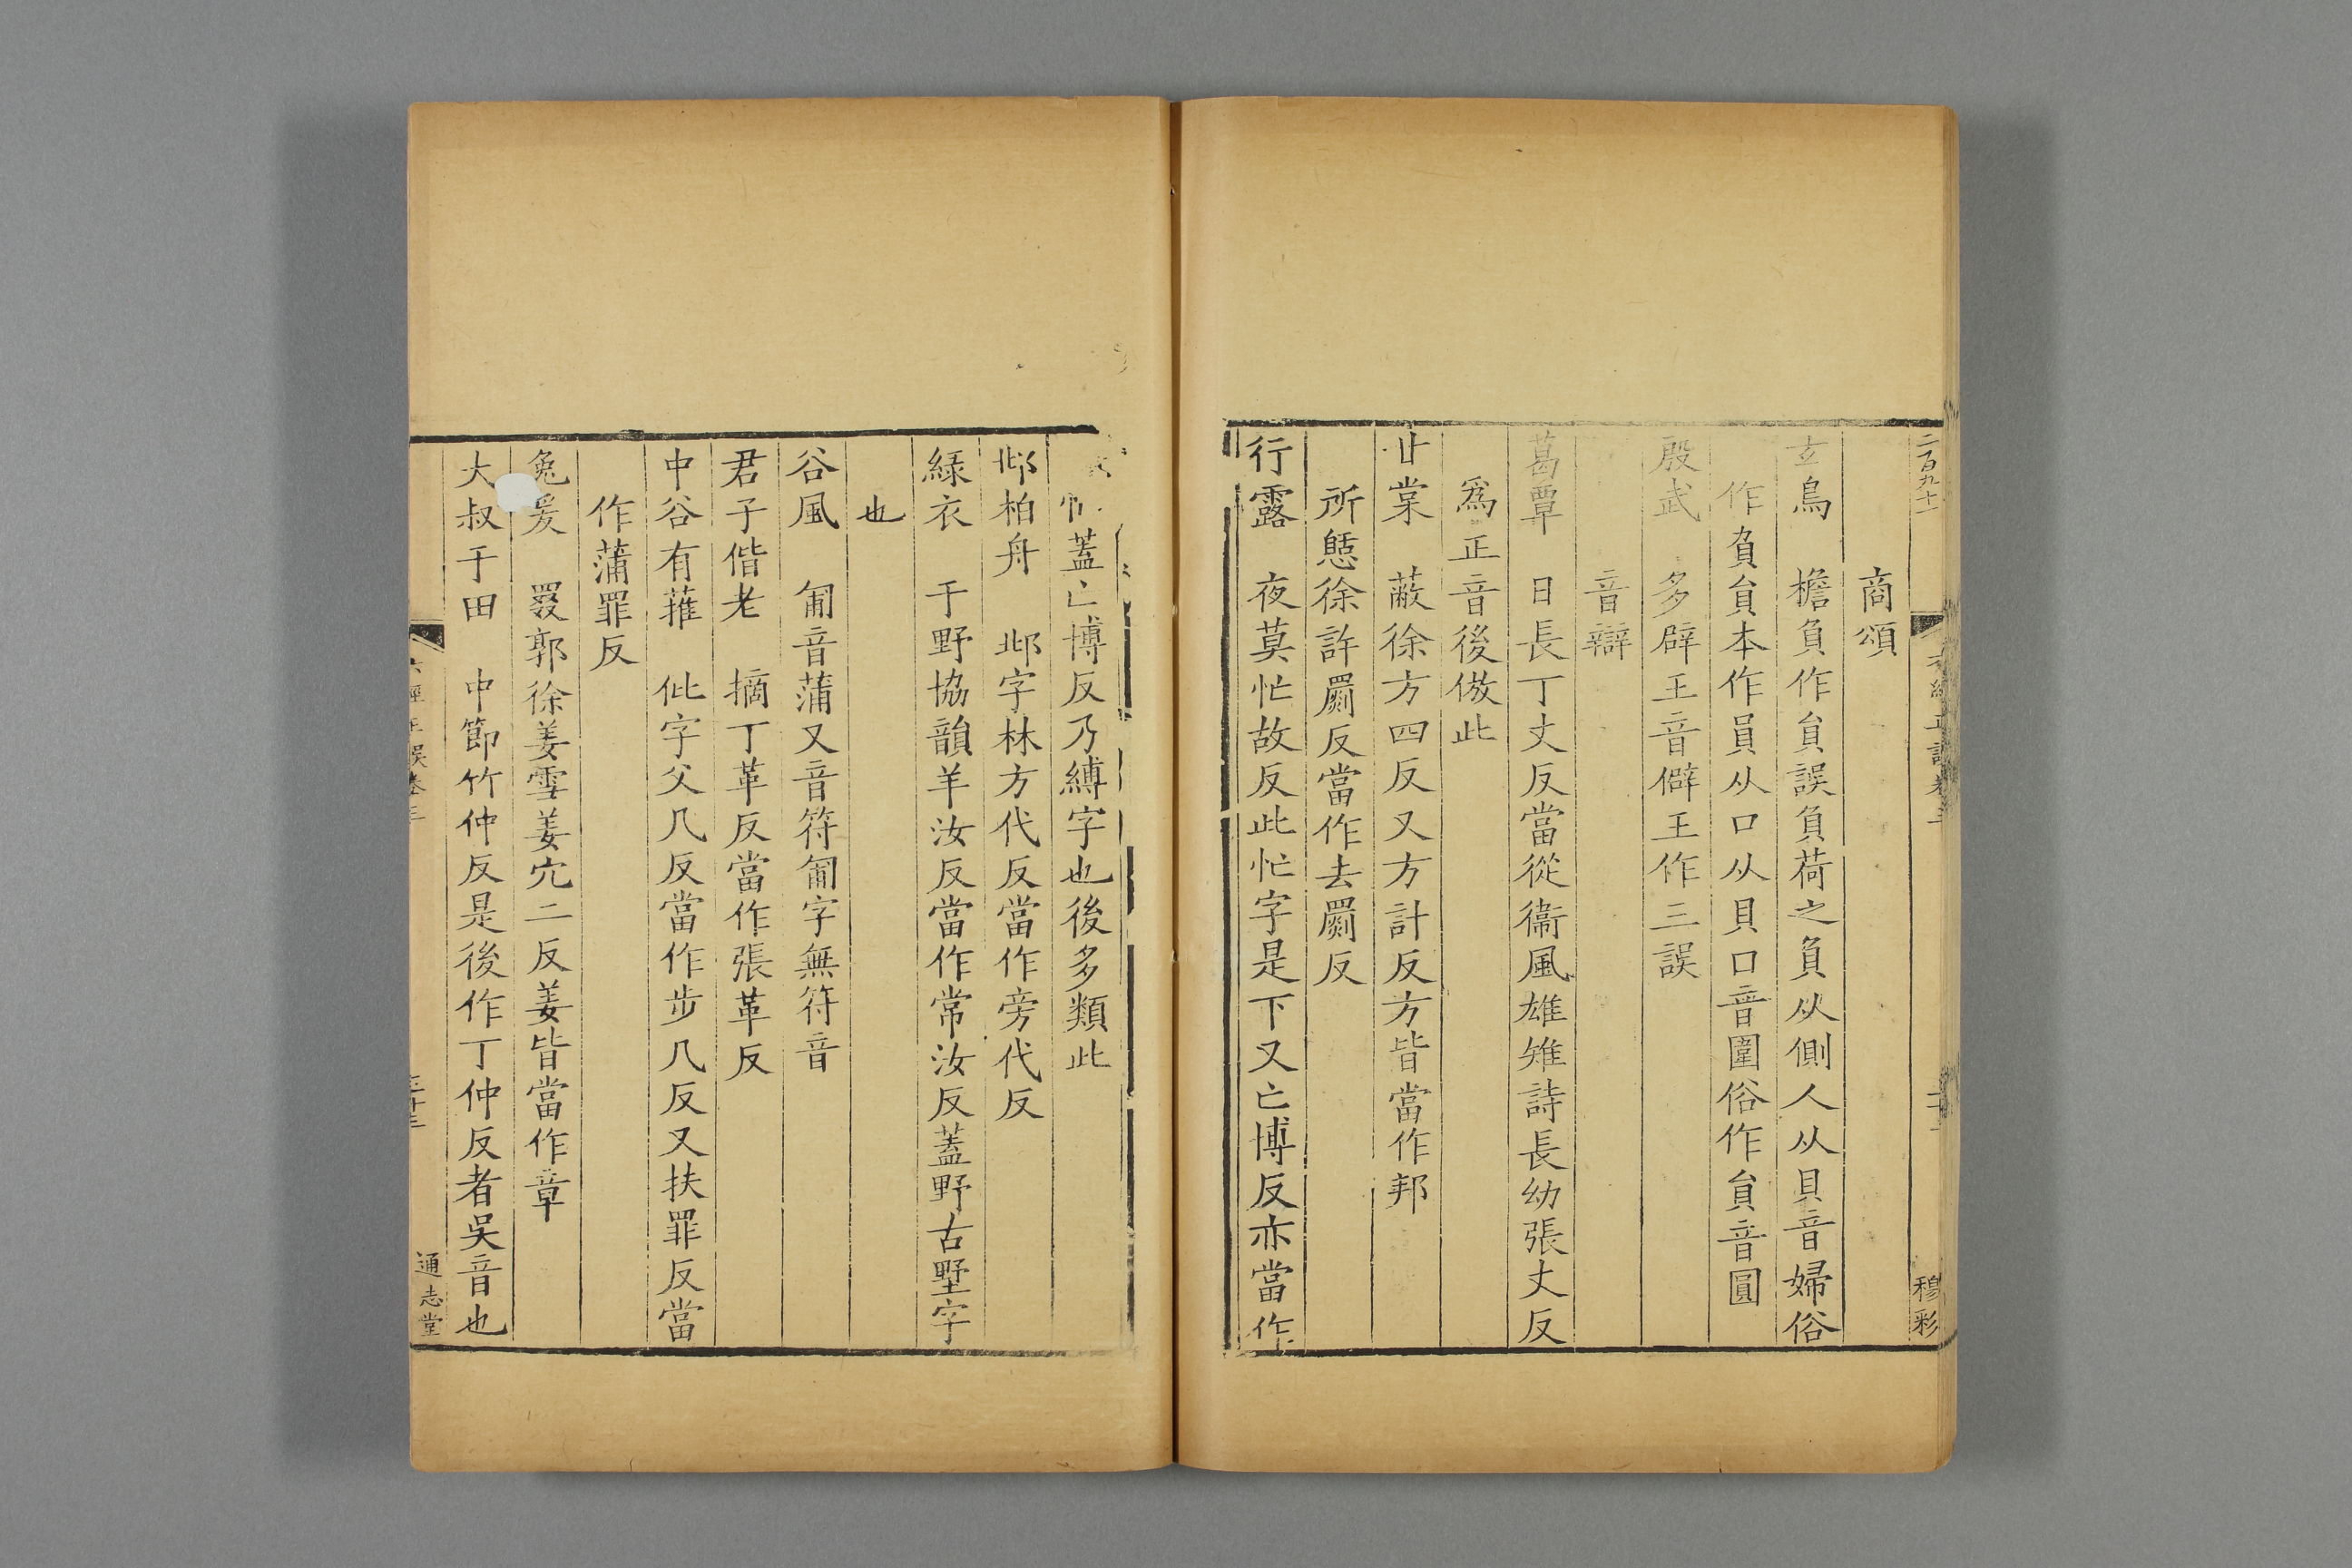 二百九十一
穆彩
商頌
玄鳥 檐負作負誤負荷之負从側人从貝音婦俗
作負貟本作員从口从貝口音圍俗作貟音圓
殷武 多辟王音僻王作三誤
音辯
葛覃 日長丁丈反當從衞風雄雉詩長幼張丈反
爲正音後倣此
甘棠 蔽徐方四反又方計反方皆當作邦
所憇徐許罽反當作去罽反
行露 夜莫忙故反此忙字是下又亡博反亦當作
忙蓋亡博反乃縛字也後多類此
邶柏舟 邶字林方代反當作旁代反
緑衣 于野協韻羊汝反當作常汝反蓋野古墅字
也
谷風 匍音蒲又音符匍字無符音
君子偕老 摘丁革反當作張革反
中谷有蓷 仳字父几反當作步几反又扶罪反當
作蒲罪反
兔爰 罬郭徐姜雪姜穴二反姜皆當作章
大叔于田 中節竹仲反是後作丁仲反者吳音也
六經正誤卷三
三十三
通志堂